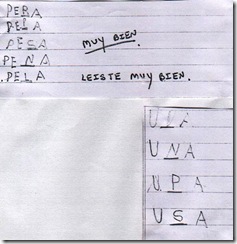 PERA
PELA
MUY BIEN.
PESA
PENA
PELA LEISTE MUY BIEN.
UNA
UPA
USA